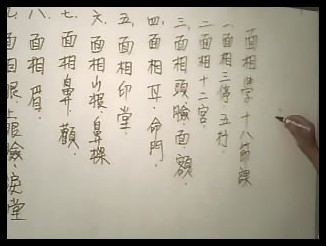 面相學十八節課
一.面相三停.五行.
二.面相十二宮.
三.面相頭.臉.面.額.
四.面相耳.命門.
五.面相印堂.
六.面相山根.鼻樑.
七.面相鼻.顴.
八.面相眉.
面相眼.上眼瞼.淚堂